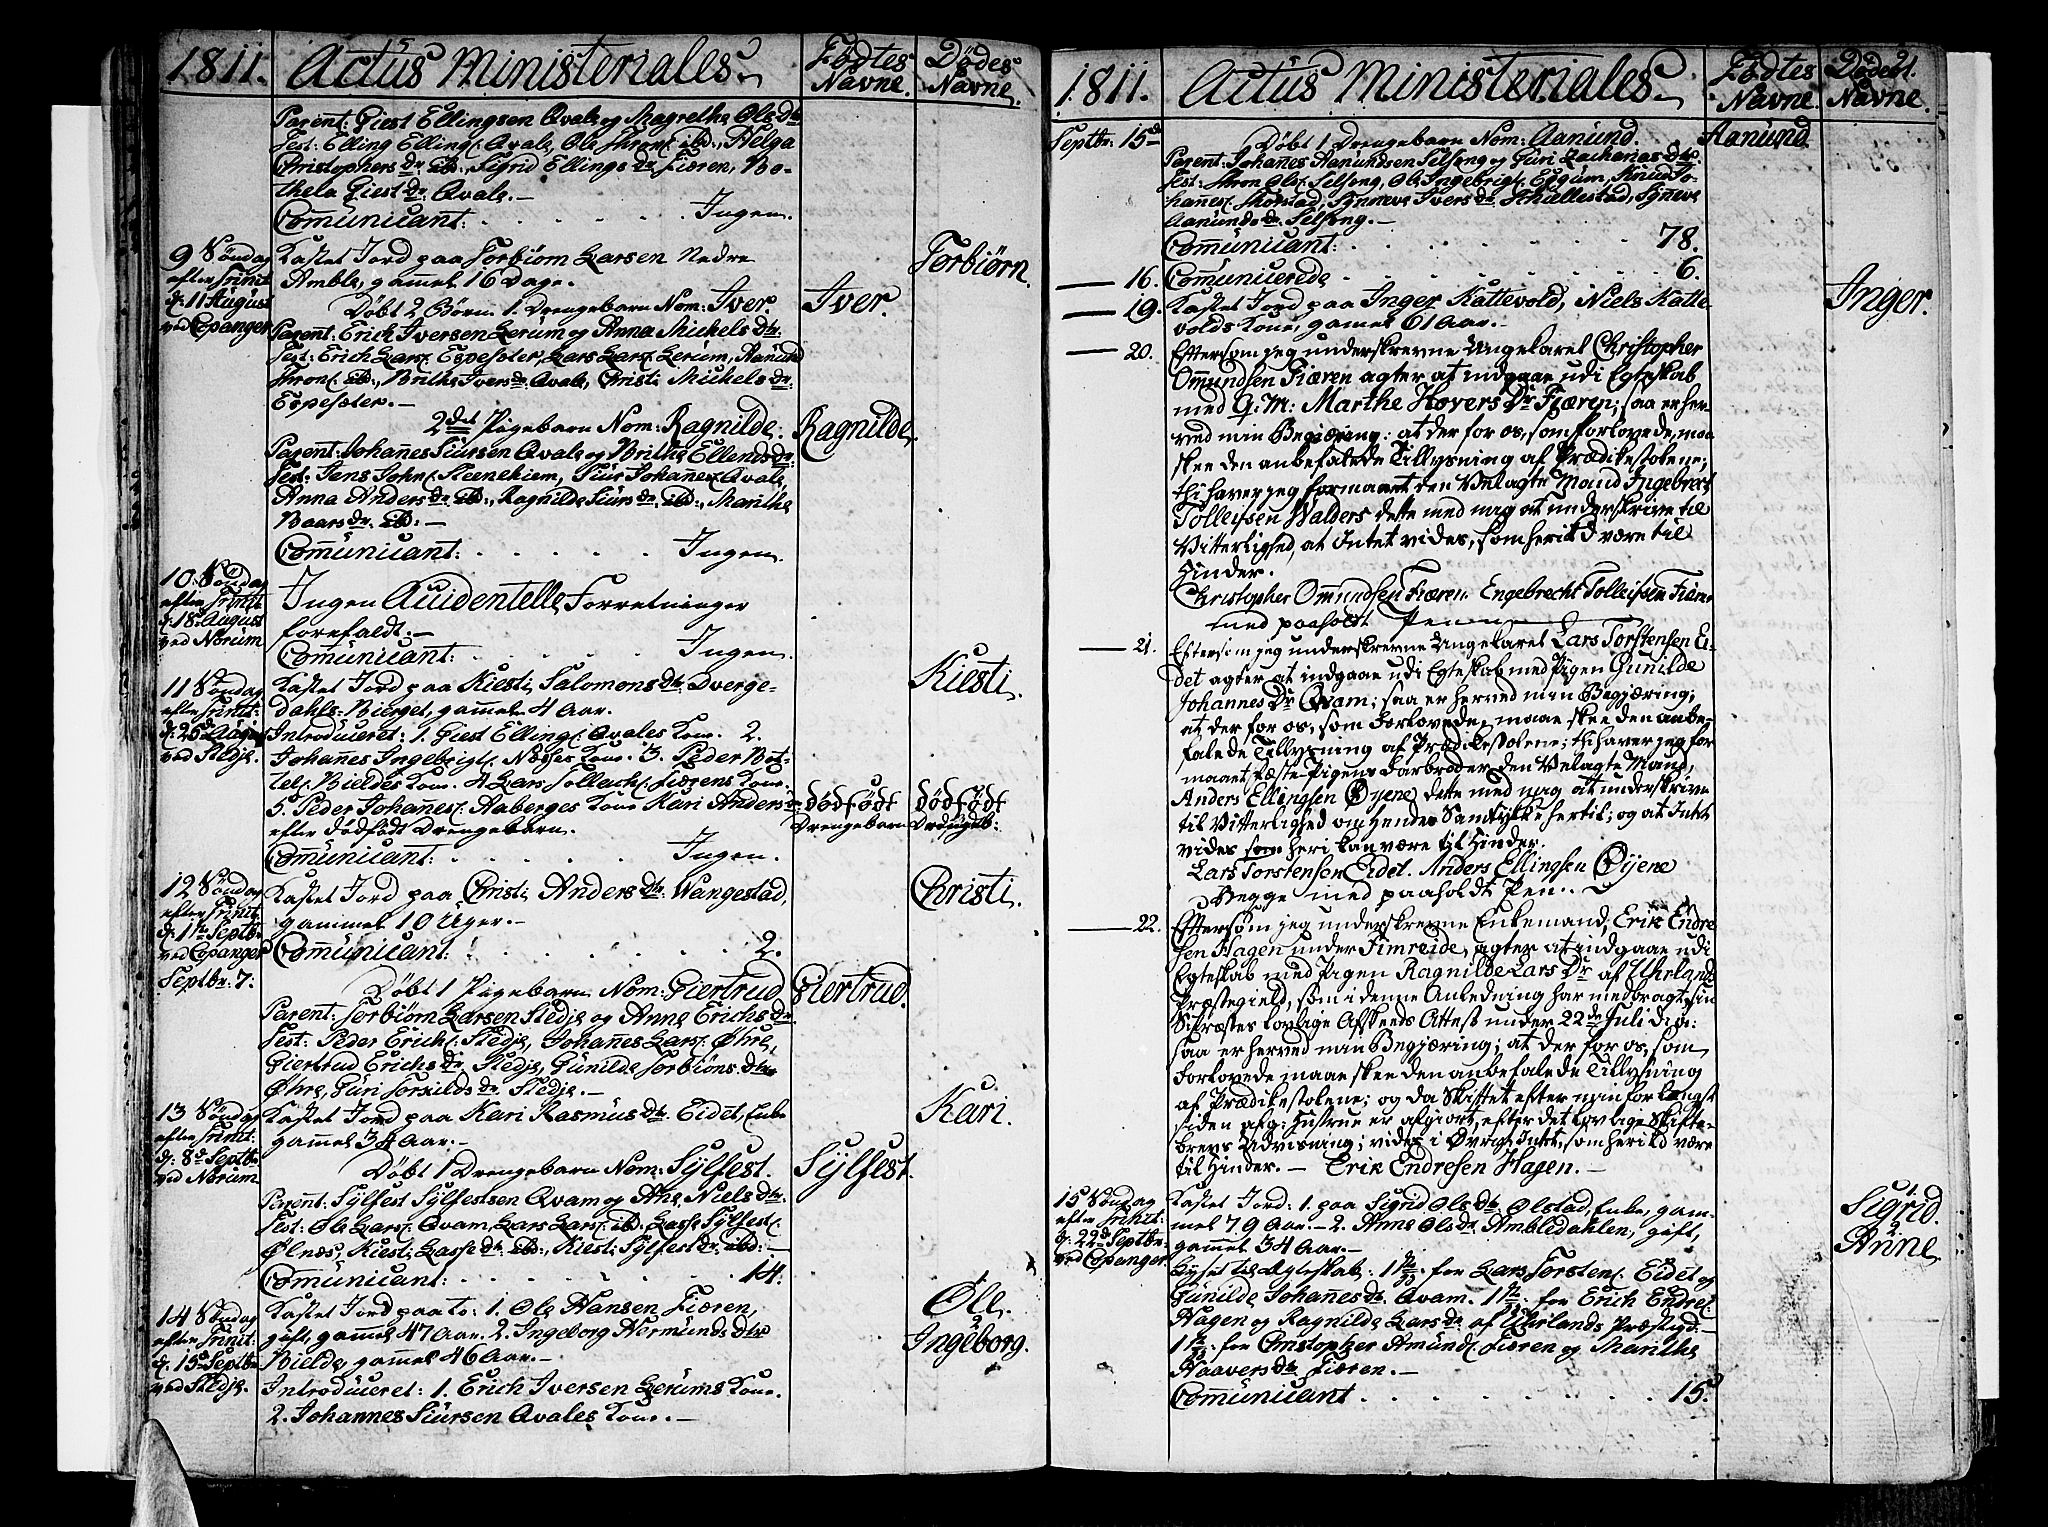 1811.
Actus Ministeriales.
Fødtes Navne.
Dødes Navne.
Parent: Giest Ellingsen Qvale og Magrethe Ols Dtr
Test: Elling Ellings. Qvale, Ole Throns. ibd., Helga
Christophers Dr. ibd., Sigrid Ellings Dr. Fiæren, Bo-
thela Giest Dr. Qvale.-
Comunicant: Ingen.
9 Søndag
efter Trinit:
d. 11 August
ved Copanger
Kastet Jord paa Torbiørn Larsen Nedre
Amble, gammel 16 Dage.
Torbiørn.
Døbt 2 Børn. 1. Drengebarn Nom: Iver.
Iver.
Parent: Erich Iversen Lerum og Anna Michels Dtr.
Test: Erich Lars. Espeseter, Lars Lars. Lerum, Aamund
Thron. ibd., Brithe Ivers Dr. Qvale, Christi Michels Dr.
Espeseter.-
2det Pigebarn Nom: Ragnilde.
Ragnilde.
Parent: Johanes Siursen Qvale og Brithe Ellends Dr:
Test: Jens John. Steenehiem, Siur Johanes. Qvale,
Anna Anders Dr. ibd., Ragnilde Siurs Dr. ibd., Marithe
Baars Dr. ibd:-
Comunicant: Ingen.
10. Søndag
efter Trinit
d. 18. August
ved Norum
Ingen Accidentelle Forretninger
forefaldt.-
Comunicant: Ingen.
11 Søndag
efter Trinit:
d. 25d August
ved Stedje.
Kastet Jord paa Kiesti Salomons Dtr. Dverge-
dahls-Bierget, gammel 4 Aar.
Kiesti.
Introduceret: 1. Giest Ellings. Qvales Kone. 2.
Johannes Ingebrigt. Næses Kone. 3. Peder Bot-
tels. Bieldes Kone. 4 Lars Tollach. Fiærens Kone.
5. Peder Johannes. Aaberges Kone Kari Anders Dr
efter dødfødt Drengebarn.
dødfødt
Drengebarn
dødfødt
Drengeb:
Comunicant: Ingen.
12 Søndag
efter Trinit
d. 1te Septbr
ved Copanger
Kastet Jord paa Christi Anders Dtr. Wangestad,
gammel 10 Uger.-
Christi.
Comunicant: 2.
Septbr. 7.
Døbt 1 Pigebarn Nom: Giertrud
Giertrud.
Parent: Torbiørn Larsen Stedje og Anne Erichs Dr.
Test: Peder Erich. Stedje, Johannes Lars. Øhre,
Giertrud Erichs Dr. Stedje, Gunilde Torbiøns Dtr.
Øhre, Guri Torkilds Dr. Stedje.-
13 Søndag
efter Trinit:
d. 8d Septbr
ved Norum
Kastet Jord paa Kari Rasmus Dtr. Eidet, Enke
gammel 34 Aar.-
Kari.
Døbt 1 Drengebarn Nom: Sylfest.
Sylfest.
Parent. Sylfest Sylfestsen Qvam og Ane Niels Dtr.
Test: Ole Lars. Qvam, Lars Lars. ibd. Lasse Sylfest.
Ølnæs, Kiesti Lasse Dtr. ibd., Kiesti Sylfest Dr. ibd.-
Comunicant: 14.
14 Søndag
efter Trinit:
d. 15d Septbr
ved Stedje.
Kastet Jord paa to: 1. Ole Hansen Fiæren,
gift, gammel 47 Aar. 2. Ingeborg Hermunds Dtr
Bielde, gammel 46 Aar.-
1
Ole.
2
Ingeborg.
Introduceret: 1. Erich Iversen Lerums Kone.
2. Johannes Siursen Qvales Kone.-
1811.
Actus Ministeriales.
Fødtes Navne.
Dødes Navne.
21.
Septbr. 15d
Døbt 1 Drengebarn Nom: Aamund.
Aamund.
Parent: Johanes Aamundsen Selseng og Guri Zacharias Dtr.
Test: Thron Ols. Selseng, Ole Ingebrigt. Eggum, Knud Jo-
hanes. Thorstad, Synneve Ivers Dr. Skallestad, Synneve
Aamunds Dr. Selseng.-
Comunicant: 78.
16. Comunicerede 6.
19. Kastet Jord paa Inger Kattevold, Niels Katte-
volds Kone, gammel 61 Aar.-
Inger.
20. Eftersom jeg underskrevne Ungekarel Christopher
Omundsen Fiæren agter at indgaae udi Egteskab
med G: M: Marthe Hovers Dr Fiæren; saa er her-
ved min Begiæring: at der for os, som forlovede, maa
skee den anbefalede Tillysning af Prædikestolene;
thi haver jeg formaaet den Velagte Mand Ingebrect
Tolleifsen Walders dette med mig at underskrive til
Vitterlighed, at Intet vides, som heri kd være til
Hinder.
Christopher Omundsen Fiæren. Engebrecht Tolleifsen Fiæren
med paaholdt Penn
21. Eftersom jeg underskrevne Ungekarel Lars Torstensen Ei-
det agter at indgaae udi Egteskab med Pigen Gunilde
Johannes Dr Qvam; saa er herved min Begjæring;
at der for os, som Forlovede, maae skee den anbe-
falede Tillysning af Prædikestolene; thi haver jeg for-
maaet Fæste-Pigens Farbroder den Velagte Mand,
Anders Ellingsen Øyene dette med mig at underskrive
til Vitterlighed om hendes Samtykke hertil; og at Intet
vides som heri kan være til Hinder.
Lars Torstensen Eidet. Anders Ellingsen Øyene
Begge med paaholdt Pen.
22. Eftersom jeg underskrevne Enkemand, Erik Endre-
sen Hagen under Fimreide, agter at indgaae udi
Egteskab med Pigen Ragnilde Lars Dr af Uhrlands
Præstegield, som i denne Anledning har medbragt sin
Sognepræstes lovlige Afskeeds Attest under 22de Juli d. A:
saa er herved min Begjæring; at der for os, som
Forlovede maae skee den anbefalede Tillysning
af Prædikestolene; og da Skiftet efter min for længst
siden afg: Hustrue er afgiort, efter det lovlige Skifte-
brevs Udvisning; vides i Øvrigt Intet, som heri kd være
til Hinder.- Erik Endresen Hagen.-
15 Søndag
efter Trinit:
d. 22d Septbr
ved Copanger
Kastet Jord: 1. paa Sigrid Ols Dtr. Olstad, Enke, gam-
mel 79 Aar.- 2. Anne Ols Dr. Ambledahlen, gift,
gammel 34 Aar.-
1
Sigrid.
2
Anne
Lyset til Ægteskab: 1te for Lars Torsten. Eidet og
Gunilde Johanes Dr. Qvam. 1te for Erich Endres:
Hagen og Ragnilde Lars Dr. af Uhrlands Præstegd.-
1te for Christopher Amunds. Fiæren og Marithe
Haavers Dtr. Fiæren.-
Comunicant 15.